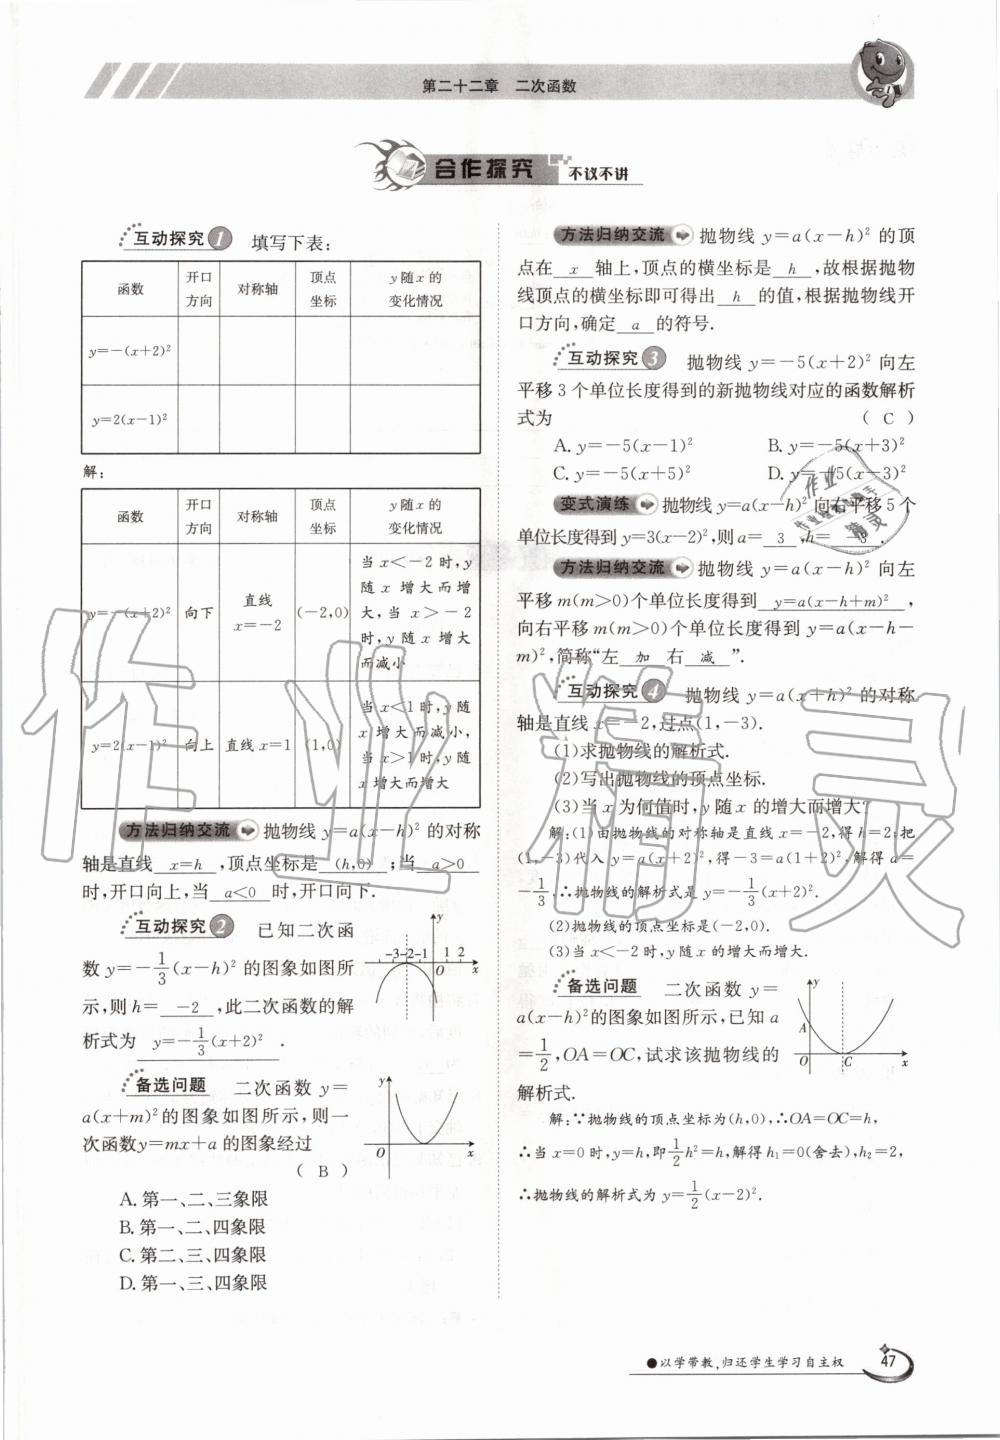 第二十二章 二次函数
合作探究 不议不讲
互动探究 1 填写下表:
函数 开口方向 对称轴 顶点坐标 y随x的变化情况
y=-(x+2)²
y=2(x-1)²
解:
函数 开口方向 对称轴 顶点坐标 y随x的变化情况
y=-(x+2)² 向下 直线x=-2 (-2,0) 当x<-2时,y随x增大而增大,当x>-2时,y随x增大而减小
y=2(x-1)² 向上 直线x=1 (1,0) 当x<1时,y随x增大而减小,当x>1时,y随x增大而增大
方法归纳交流 抛物线y=a(x-h)²的对称
轴是直线 x=h ,顶点坐标是 (h,0) ;当 a>0
时,开口向上,当 a<0 时,开口向下.
互动探究 2 已知二次函
数y=-1/3(x-h)²的图象如图所
示,则h= -2 ,此二次函数的解
析式为 y=-1/3(x+2)² .
y
-3-2-1 O 1 2 x
备选问题 二次函数y=
a(x+m)²的图象如图所示,则一
次函数y=mx+a的图象经过
( B )
y
O x
A.第一、二、三象限
B.第一、二、四象限
C.第二、三、四象限
D.第一、三、四象限
方法归纳交流 抛物线y=a(x-h)²的顶
点在 x 轴上,顶点的横坐标是 h ,故根据抛物
线顶点的横坐标即可得出 h 的值,根据抛物线开
口方向,确定 a 的符号.
互动探究 3 抛物线y=-5(x+2)²向左
平移3个单位长度得到的新抛物线对应的函数解析
式为 ( C )
A.y=-5(x-1)² B.y=-5(x+3)²
C.y=-5(x+5)² D.y=-5(x-3)²
变式演练 抛物线y=a(x-h)²向右平移5个
单位长度得到y=3(x-2)²,则a= 3 ,h= -3 .
方法归纳交流 抛物线y=a(x-h)²向左
平移m(m>0)个单位长度得到 y=a(x-h+m)² ,
向右平移m(m>0)个单位长度得到y=a(x-h-
m)²,简称“左 加 右 减 ”.
互动探究 4 抛物线y=a(x+h)²的对称
轴是直线x=-2,过点(1,-3).
(1)求抛物线的解析式.
(2)写出抛物线的顶点坐标.
(3)当x为何值时,y随x的增大而增大?
解:(1)由抛物线的对称轴是直线x=-2,得h=2;把
(1,-3)代入y=a(x+2)²,得-3=a(1+2)²,解得a=
-1/3,∴抛物线的解析式是y=-1/3(x+2)².
(2)抛物线的顶点坐标是(-2,0).
(3)当x<-2时,y随x的增大而增大.
备选问题 二次函数y=
a(x-h)²的图象如图所示,已知a
=1/2,OA=OC,试求该抛物线的
解析式.
y
A
O C x
解:∵抛物线的顶点坐标为(h,0),∴OA=OC=h,
∴当x=0时,y=h,即1/2h²=h,解得h₁=0(舍去),h₂=2,
∴抛物线的解析式为y=1/2(x-2)².
作业精灵
●以学带教,归还学生学习自主权 47